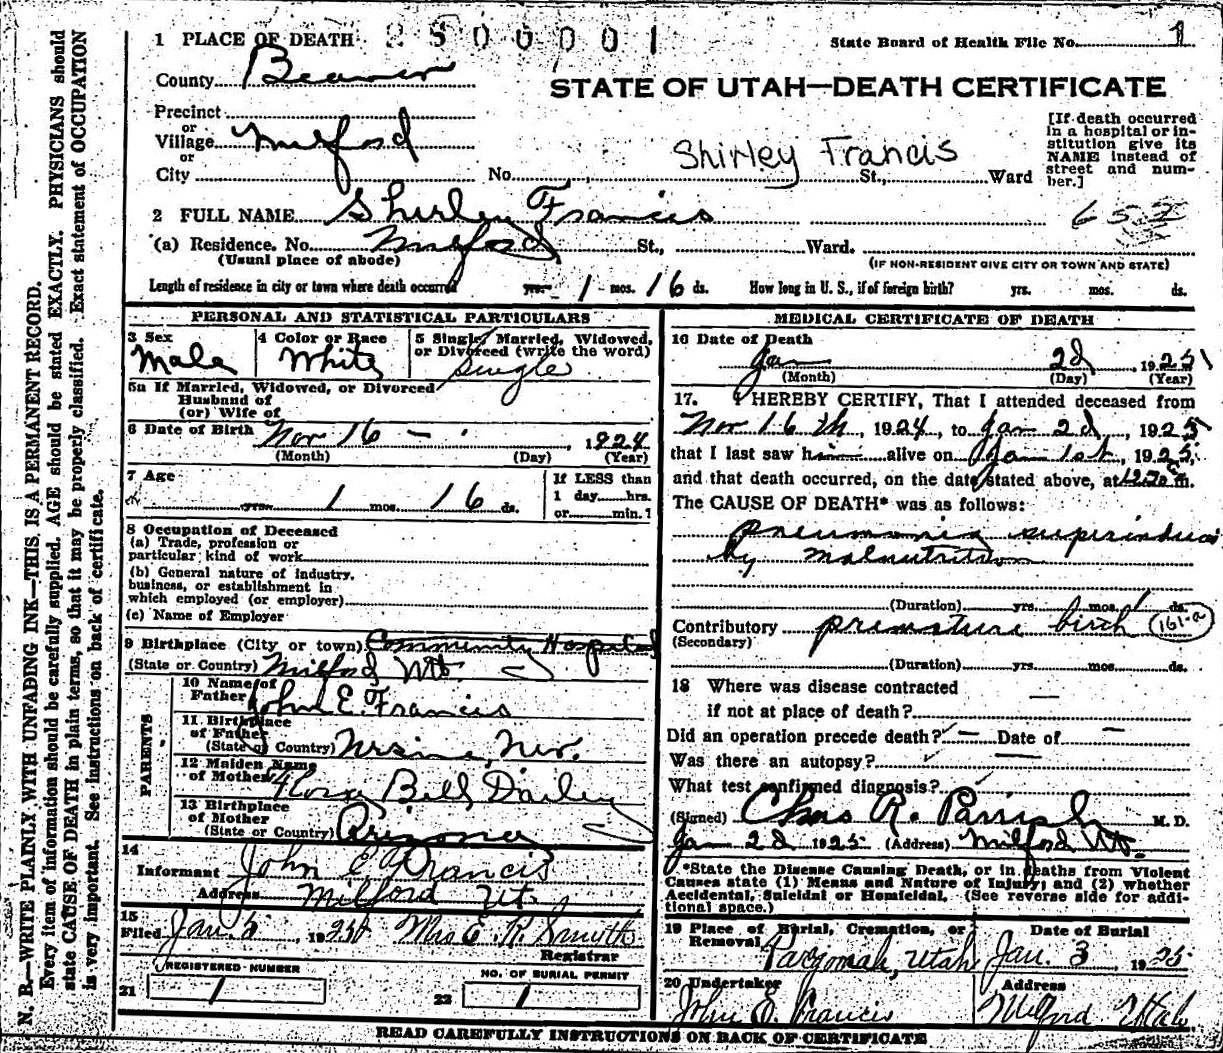 N. B.—WRITE PLAINLY, WITH UNFADING INK—THIS IS A PERMANENT RECORD.
Every item of information should be carefully supplied. AGE should be stated EXACTLY. PHYSICIANS should
state CAUSE OF DEATH in plain terms, so that it may be properly classified. Exact statement of OCCUPATION
is very important. See instructions on back of certificate.
1 PLACE OF DEATH 2500001
State Board of Health File No. 1
County Beaver
STATE OF UTAH—DEATH CERTIFICATE
Precinct
or
Village Milford
or
City No. St., Ward
Shirley Francis
[If death occurred
in a hospital or in-
stitution give its
NAME instead of
street and num-
ber.]
2 FULL NAME Shirley Francis
(a) Residence. No. Milford St., Ward.
(Usual place of abode)
(IF NON-RESIDENT GIVE CITY OR TOWN AND STATE)
Length of residence in city or town where death occurred yrs. 1 mos. 16 ds. How long in U. S., if of foreign birth? yrs. mos. ds.
PERSONAL AND STATISTICAL PARTICULARS
3 Sex
Male
4 Color or Race
White
5 Single, Married, Widowed,
or Divorced (write the word)
Single
5a If Married, Widowed, or Divorced
Husband of
(or) Wife of
6 Date of Birth Nov 16 — 1924
(Month) (Day) (Year)
7 Age
yrs. 1 mos. 16 ds.
If LESS than
1 day hrs.
or min.?
8 Occupation of Deceased
(a) Trade, profession or
particular kind of work
(b) General nature of industry,
business, or establishment in
which employed (or employer)
(c) Name of Employer
9 Birthplace (City or town) Community Hospital
(State or Country) Milford Ut.
PARENTS
10 Name of
Father John E. Francis
11 Birthplace
of Father
(State or Country) Ursine, Nev.
12 Maiden Name
of Mother Flora Bell Dailey
13 Birthplace
of Mother
(State or Country) Arizona
14
Informant John E. Francis
Address Milford Ut.
15
Filed Jan. 5, 1925 Mrs E. R. Smyth
Registrar
REGISTERED NUMBER
21 1
NO. OF BURIAL PERMIT
22 1
MEDICAL CERTIFICATE OF DEATH
16 Date of Death
Jan 2d, 1925
(Month) (Day) (Year)
17. I HEREBY CERTIFY, That I attended deceased from
Nov 16th, 1924, to Jan 2d, 1925
that I last saw him alive on Jan 1st, 1925,
and that death occurred, on the date stated above, at m.
The CAUSE OF DEATH* was as follows:
pneumonia superinduced
by malnutrition
(Duration) yrs. mos. 1 ds.
Contributory premature birch 161-a
(Secondary)
(Duration) yrs. mos. ds.
18 Where was disease contracted
if not at place of death? —
Did an operation precede death? — Date of —
Was there an autopsy? —
What test confirmed diagnosis?
(Signed) Chas R. Parrish M. D.
Jan 2d 1925 (Address) Milford Ut.
*State the Disease Causing Death, or in deaths from Violent
Causes state (1) Means and Nature of Injury; and (2) whether
Accidental, Suicidal or Homicidal. (See reverse side for addi-
tional space.)
19 Place of Burial, Cremation, or
Removal Date of Burial
Utah Jan. 3 1925
20 Undertaker Address
John E. Francis Milford Utah
READ CAREFULLY INSTRUCTIONS ON BACK OF CERTIFICATE